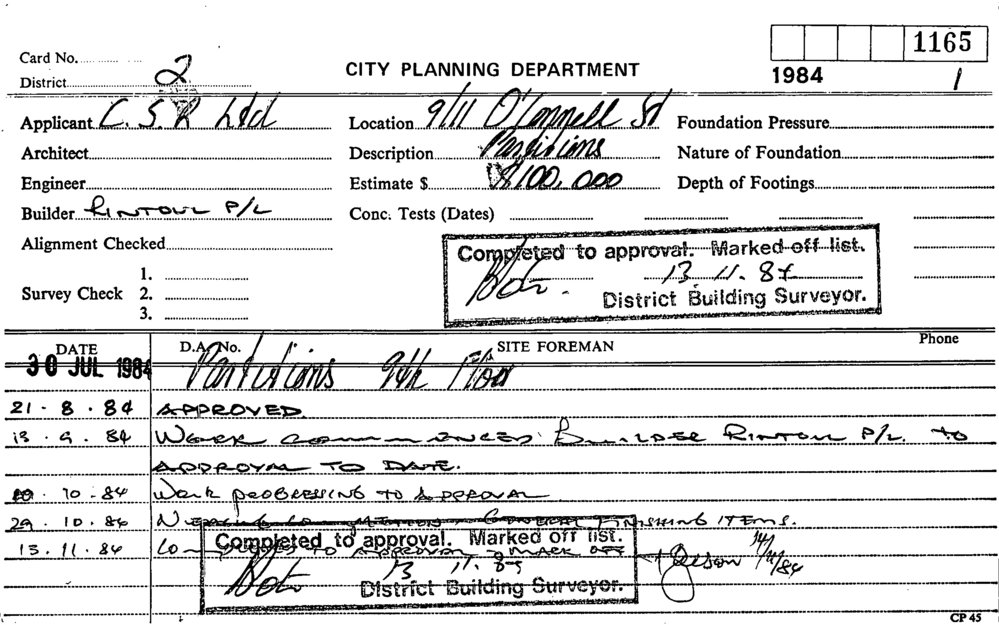 Card No.
1165
District 2
CITY PLANNING DEPARTMENT
1984
1
Applicant C. S. R Ltd
Location 9/11 O'Connell St
Foundation Pressure
Architect
Description Partitions
Nature of Foundation
Engineer
Estimate $ $100,000
Depth of Footings
Builder RINTOUL P/L
Conc. Tests (Dates)
Alignment Checked
Completed to approval. Marked off list.
13. 11. 84
District Building Surveyor.
Survey Check
1.
2.
3.
DATE
D.A. No.
SITE FOREMAN
Phone
30 JUL 1984 Partitions 9th Floor
21 - 8 - 84 APPROVED
13 - 9 - 84 WORK COMMENCED: BUILDER RINTOUL P/L. TO
APPROVAL TO DATE.
10 - 84 Work PROGRESSING TO APPROVAL
29 - 10 - 84 NEARING COMPLETION - GENERAL FINISHING ITEMS.
13 - 11 - 84 TO APPROVAL - MARK OFF
Completed to approval. Marked off list.
13 11. 84
District Building Surveyor.
CP 45